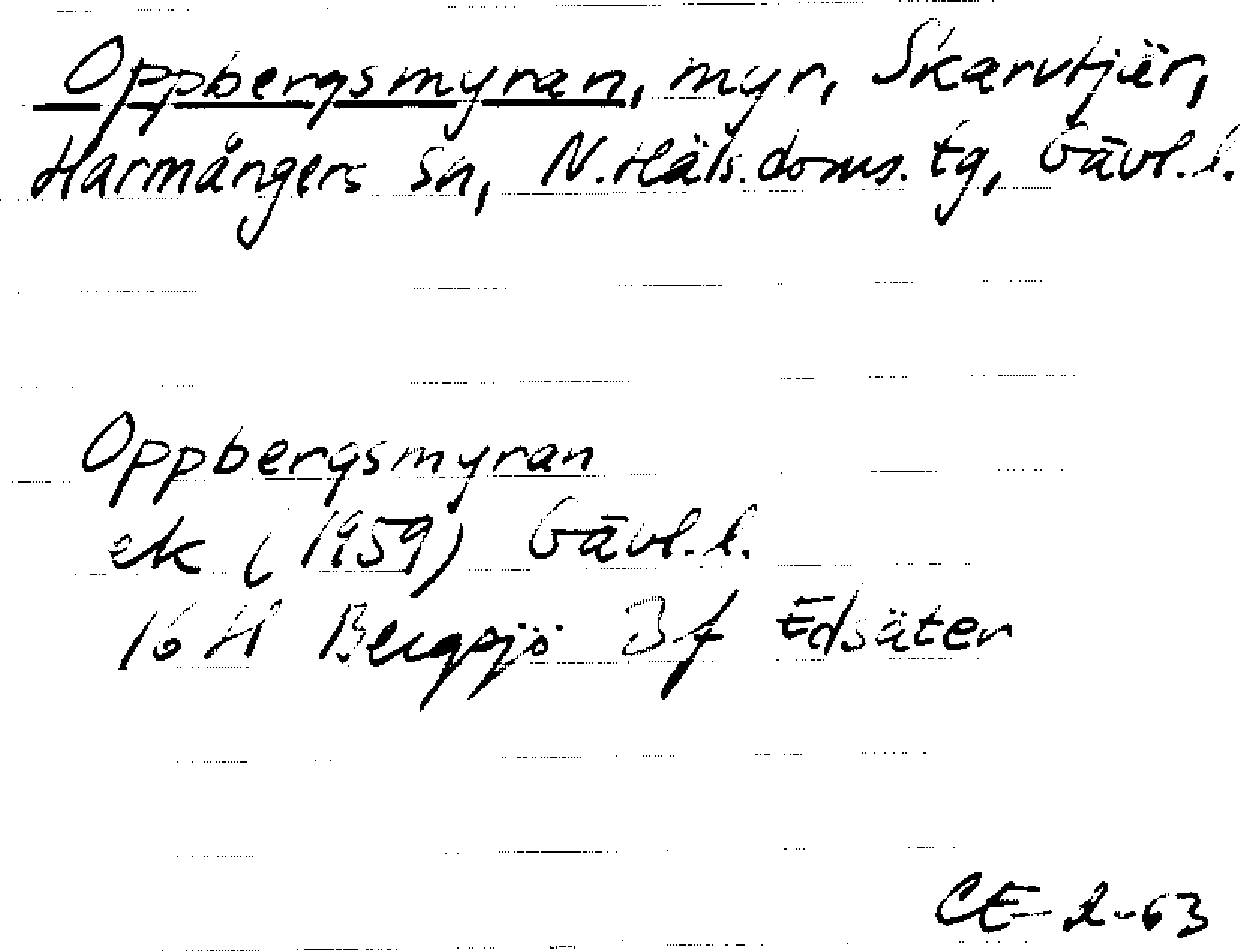 Oppbergsmyran, myr, Skarvtjär,
Harmångers sn, N.Häls.doms.tg, Gävl.l.
Oppbergsmyran
ek (1959) Gävl.l.
16 H Bergsjö 3f Edsäter
CE-2-63